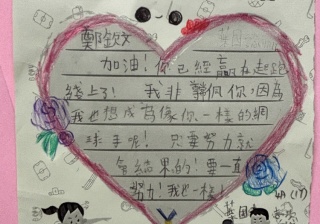 鄭欽文
加油！你已經贏在起跑
線上了！我非常佩你，因為
我也想成為像你一樣的網
球手呢！只要努力就
會結果的！要一直
努力！我也一樣
4A (17)
英國